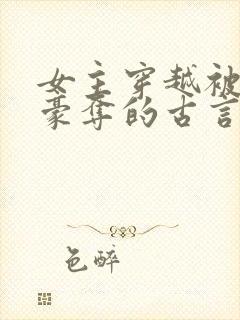 女主穿越被
豪夺的古言
色醉